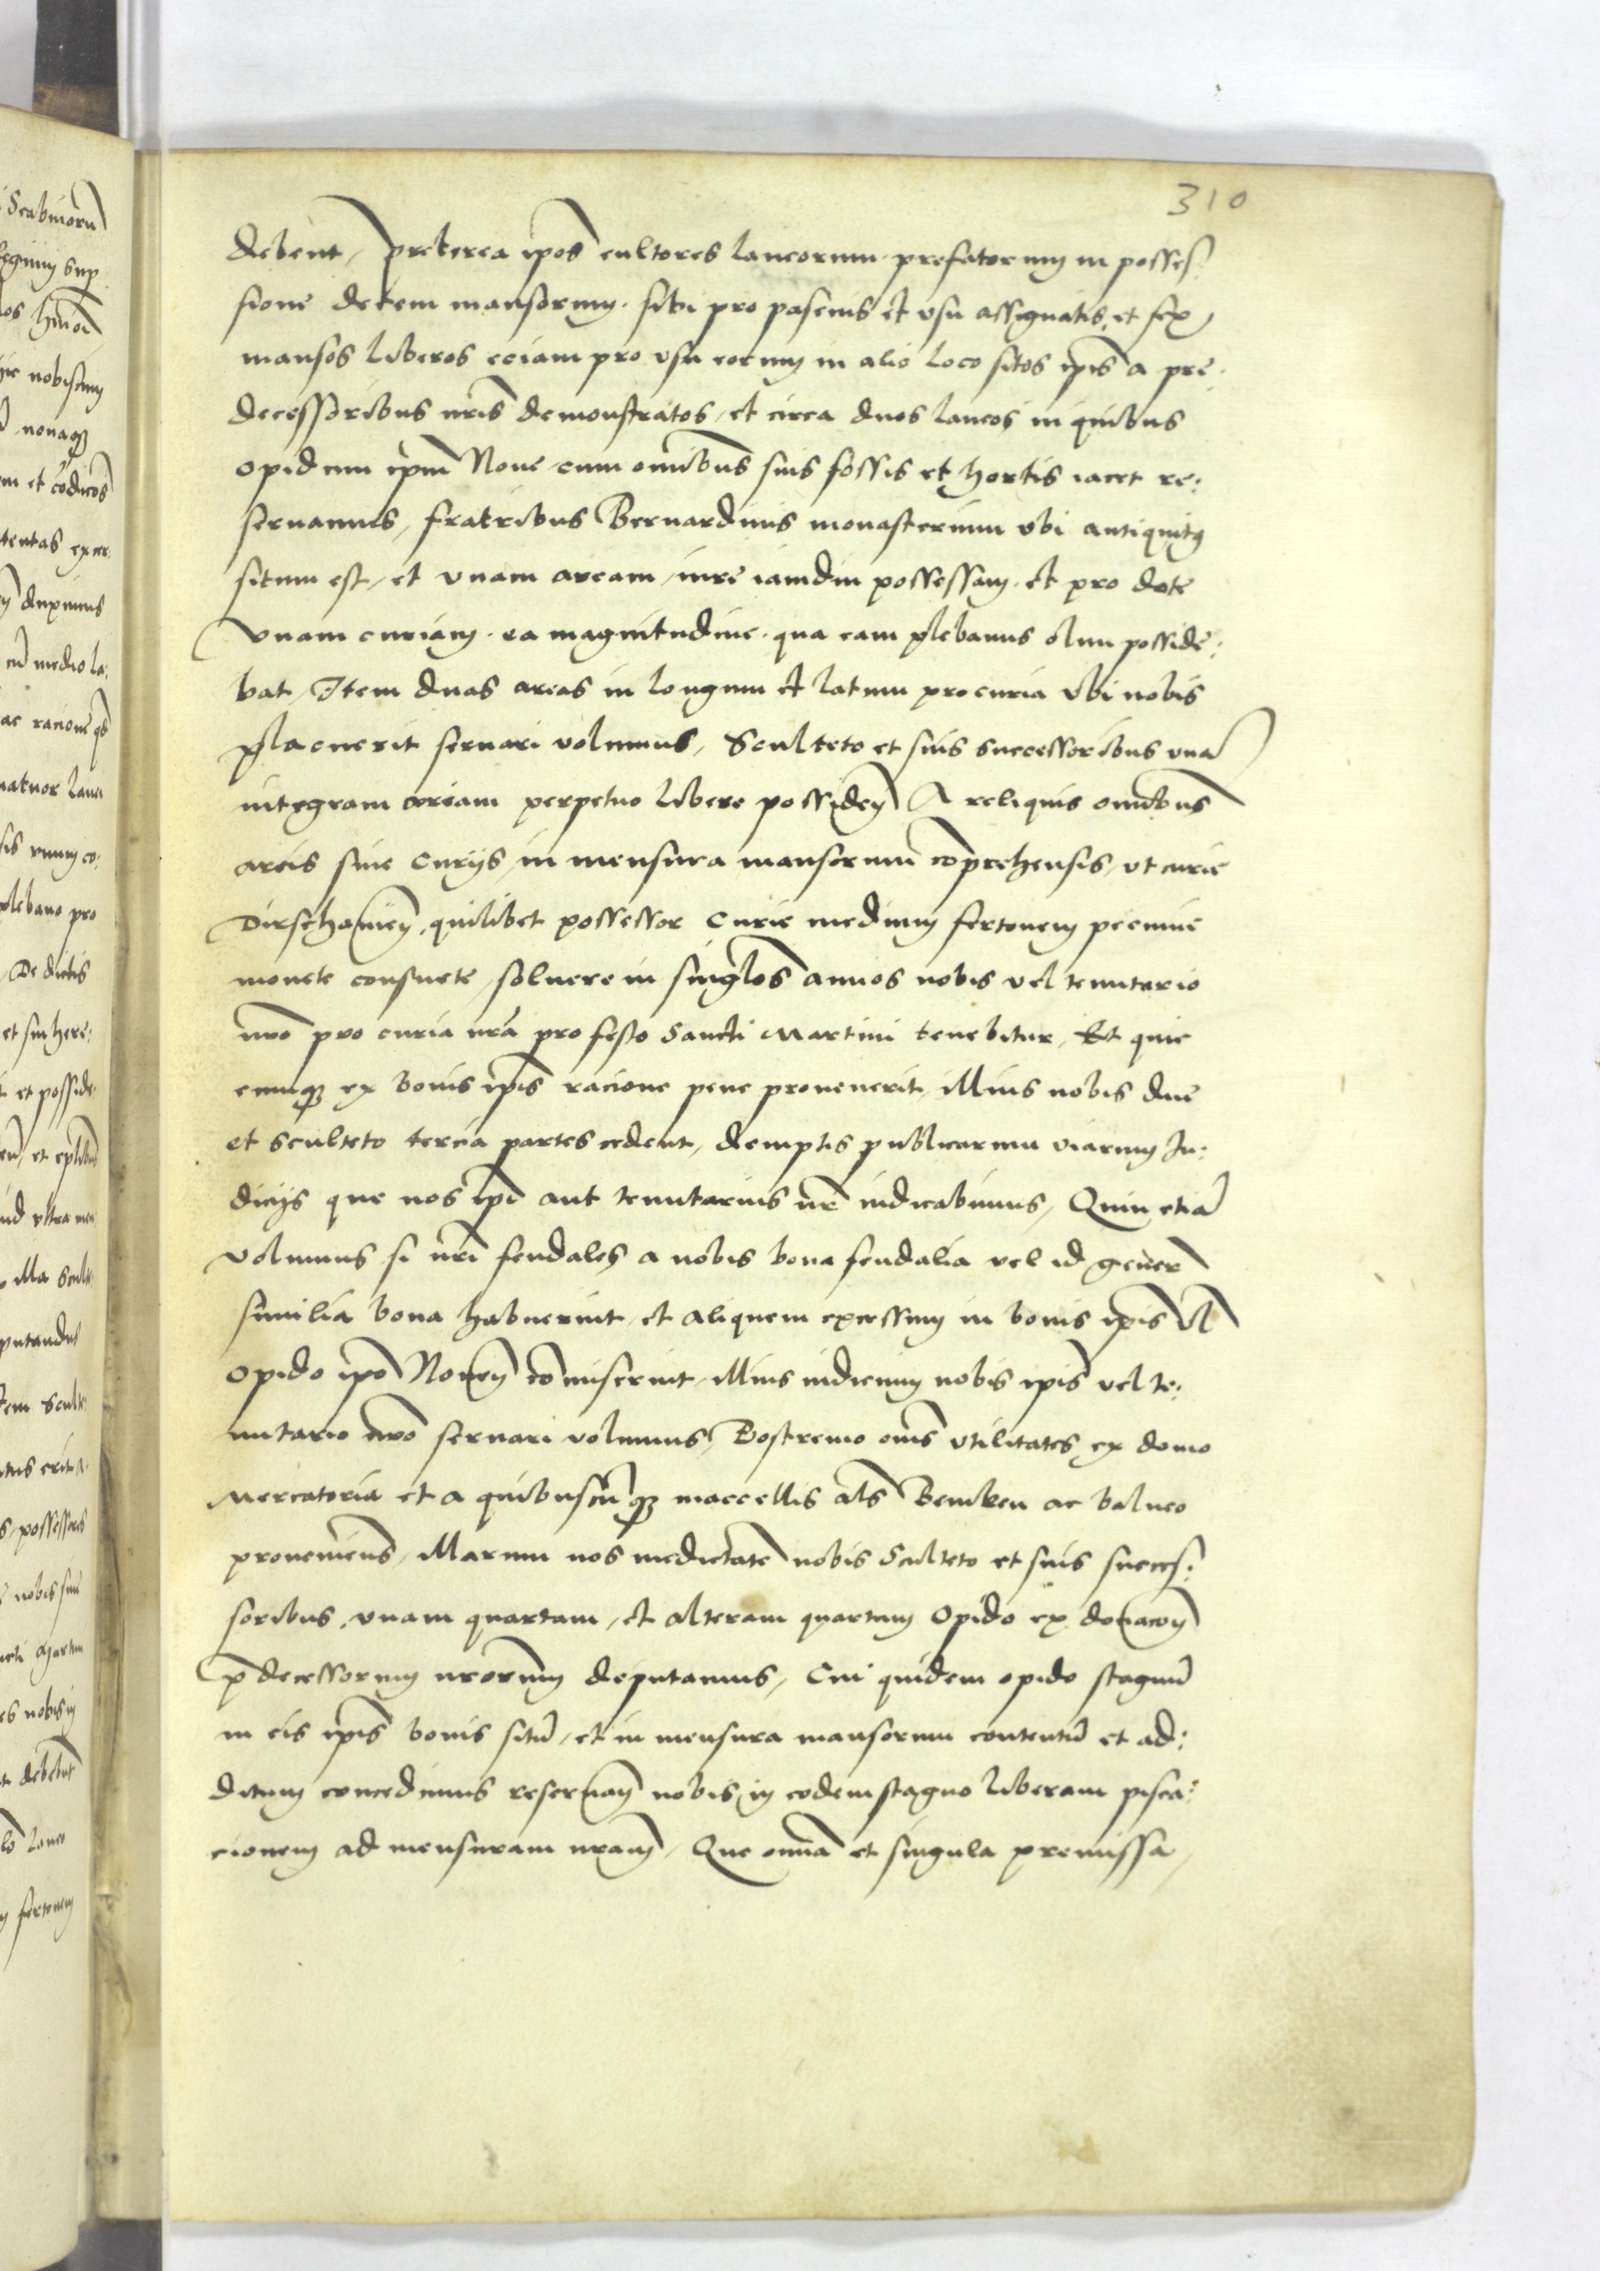 310
debent, preterea ip̄os cultores laneorum prefatorum in posses:
sione decem mansorum sibi pro pascuis et vsu assignatis, et sex
mansos liberos eciam pro vsu eorum in alio loco sitos ip̄is a pre:
decessoribus nr̄is demonstratos, et circa duos laneos in quibus
opidum ip̄m Noue cum om̄ibus suis fossis et hortis iacet re:
seruamus, fratribus Bernardinis monasterium vbi antiquitꝰ
situm est, et vnam aream, iure iamdiu possessam et pro dote
vnam curiam ea magnitudine qua eam plebanus olim posside:
bat, Item duas areas in longum et latum pro curia vbi nobis
placuerit seruari volumus, Sculteto et suis successoribus vnā
integram curiam perpetuo libere possideñ A reliquis om̄ibus
areis siue Curijs, in mensura mansorum cōprehensis, vt curie
Dirschauieñ, quilibet possessor Curie medium fertonem pecunie
monete consuete, soluere in singl̄os annos nobis vel tenutario
nr̄o pro curia nr̄a pro festo Sancti Martini tenebitur, Et quic
cumqꝫ ex bonis ip̄is racione pene prouenerit, illius nobis due
et sculteto tercia partes cedent, demptis publicarum viarum Iu:
dicijs que nos ip̄i aut tenutarius nr̄ iudicabimus, Quin etiā
volumus si nr̄i feudales a nobis bona feudalia vel id gener̄
similia bona habuerint, et aliquem excessum in bonis ip̄is vl̄
opido ip̄o Noueñ cōmiserint, illius iudicium nobis ip̄is vel te:
nutario nr̄o seruari volumus, Postremo om̄s vtilitates ex domo
Mercatoria et a quibuscūqꝫ maccellis al̄s Benken ac balneo
proueniens, Illarum nos medietatē nobis Sculteto et suis succes:
soribus, vnam quartam, et alteram quartam Opido ex donacoñ
p̄decessorum nr̄orum deputamus, Cui quidem opido stagnū
in eis ip̄is bonis sitū, et in mensura mansorum contentū et ad:
ditum concedimus reseruañ nobis in eodem stagno liberam pisca:
cionem ad mensuram nr̄am, Que om̄ia et singula premissa,